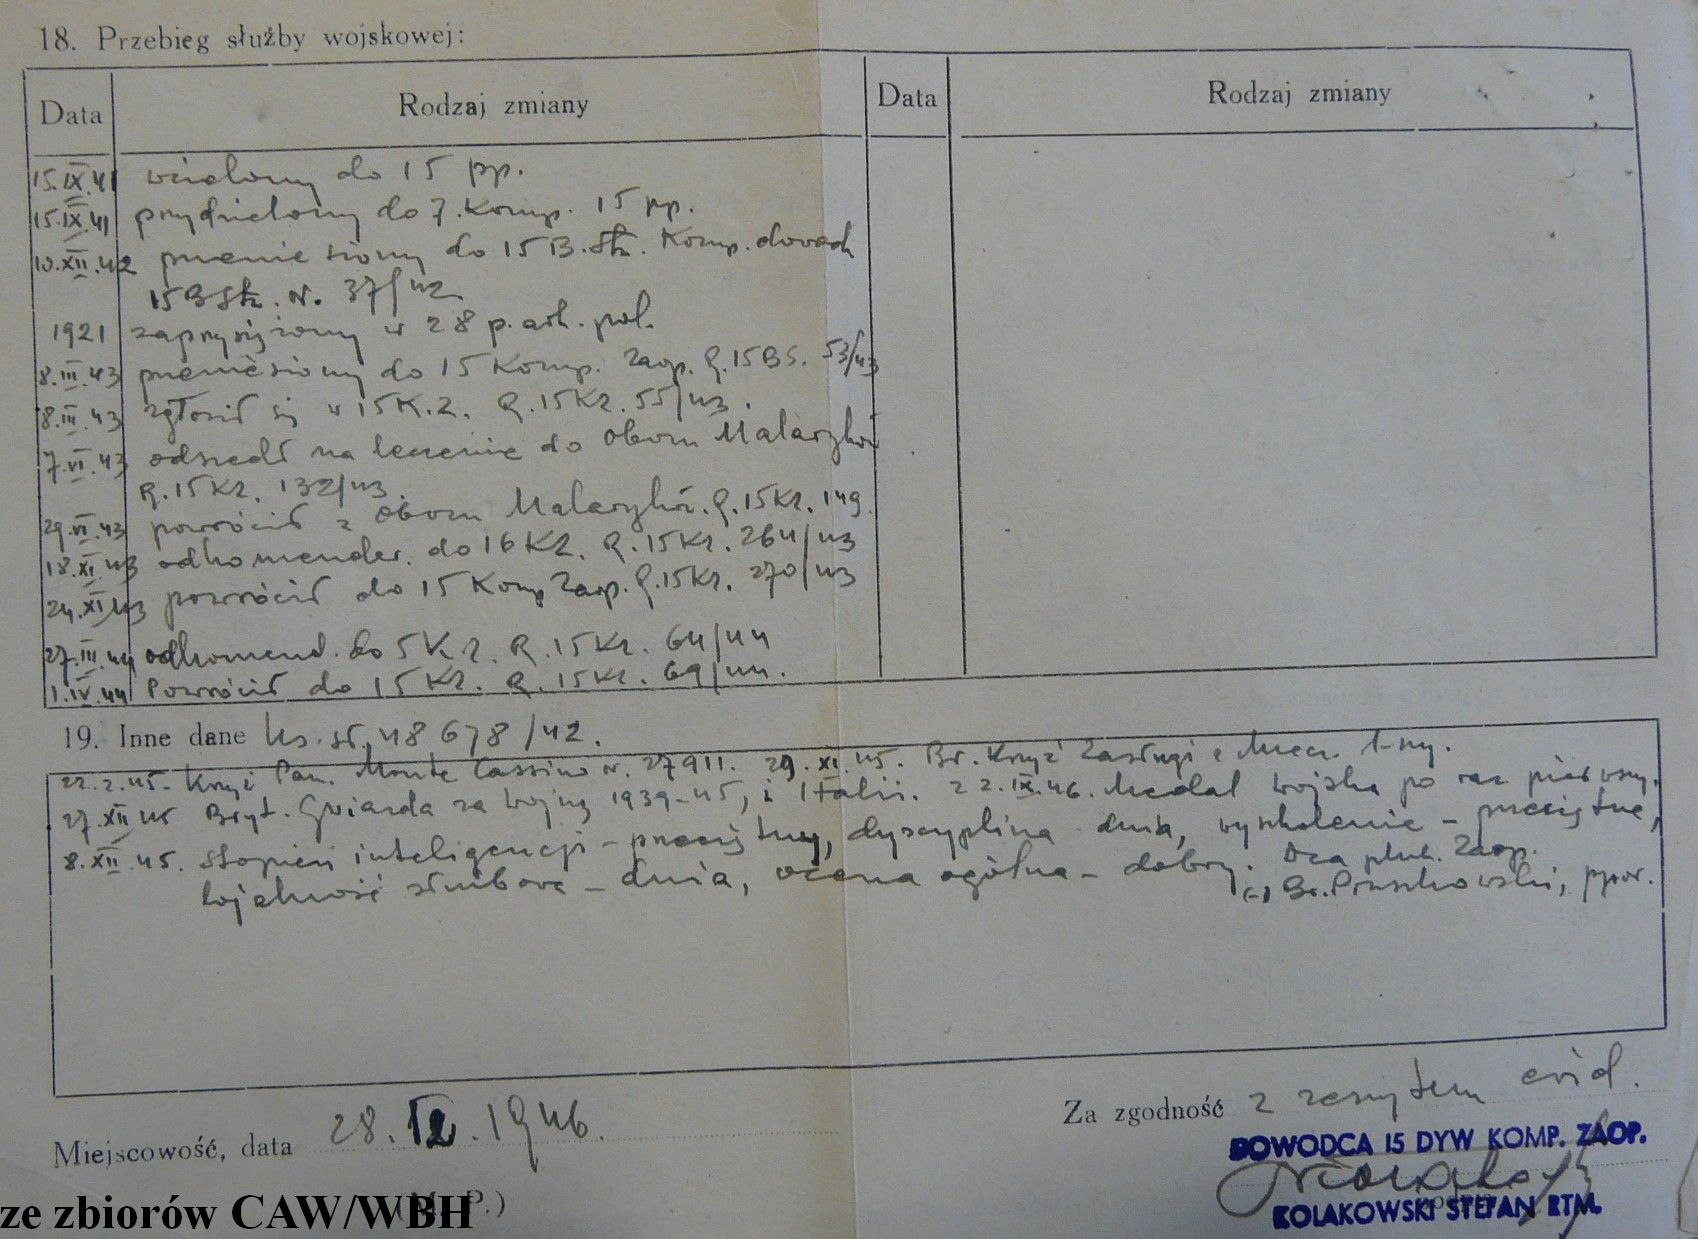 18. Przebieg służby wojskowej:
Data Rodzaj zmiany Data Rodzaj zmiany
15.IX.41 wcielony do 15 pp.
15.IX.41 przydzielony do 7. Komp. 15 pp.
10.XII.42 przeniesiony do 15 B. Komp. dowodz
15 B N. 37/42
1921 zaprzysiężony w 28 p. art. pol.
8.III.43 przeniesiony do 15 Komp. Zaop. R. 15 BS. 53/43
8.III.43 zgłosił się w 15 K.Z. R. 15 KZ. 55/43.
7.VI.43 odszedł na leczenie do Obozu Malaryków
R. 15 KZ. 132/43.
29.VI.43 powrócił z Obozu Malaryków. R. 15 KZ. 149
18.XI.43 odkomender. do 16 KZ. R. 15 KZ. 264/43
24.XI.43 powrócił do 15 Komp Zaop. R. 15 KZ. 270/43
27.III.44 odkomend. do 5 KZ. R. 15 KZ. 64/44
1.IV.44 Powrócił do 15 KZ. R. 15 KZ. 69/44.
19. Inne dane 48678/42.
22.2.45 - Krzyż Pam. Monte Cassino N. 27911. 29.XI.45. Br. Krzyż Zasługi z Mecz. 1-szy.
27.XII.45 Bryt. Gwiazda za Wojnę 1939-45, i Italii. 22.IX.46. Medal Wojska po raz pierwszy.
8.XII.45. Stopień inteligencji - przeciętny, dyscyplina duża, wyszkolenie - przeciętne,
lojalność służbowa - duża, ocena ogólna - dobry. Dca plut. Zaop.
(-) Br. Pruszkowski, ppor.
Miejscowość, data 28.IX.1946.
(M. P.)
Za zgodność z zeszytem ewid.
DOWODCA 15 DYW KOMP. ZAOP.
KOLAKOWSKI STEFAN RTM.
ze zbiorów CAW/WBH